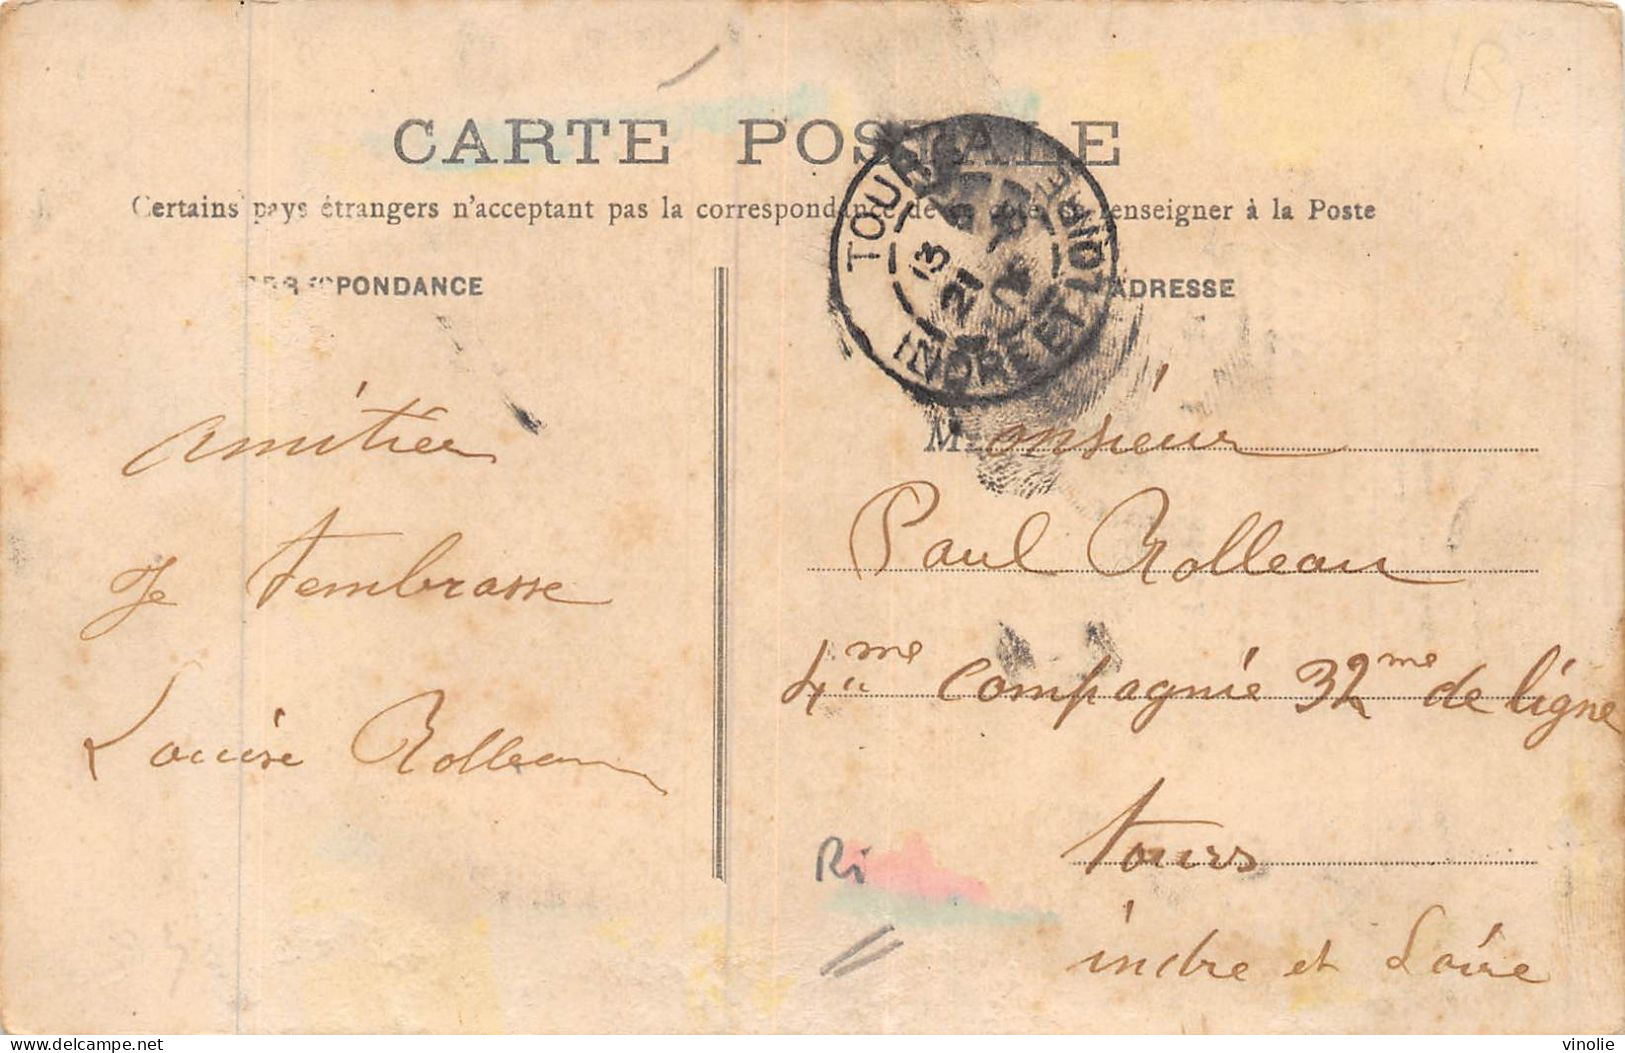 CARTE POSTALE
Certains pays étrangers n'acceptant pas la correspondance de ce côté, se renseigner à la Poste
CORRESPONDANCE
ADRESSE
TOURS GARE
13
21
INDRE ET LOIRE
Amitier
Je t'embrasse
Louise Rolleau
Monsieur
Paul Rolleau
4me Compagnie 32me de ligne
tours
indre et Loire
Ri
delcampe.net
vinolie